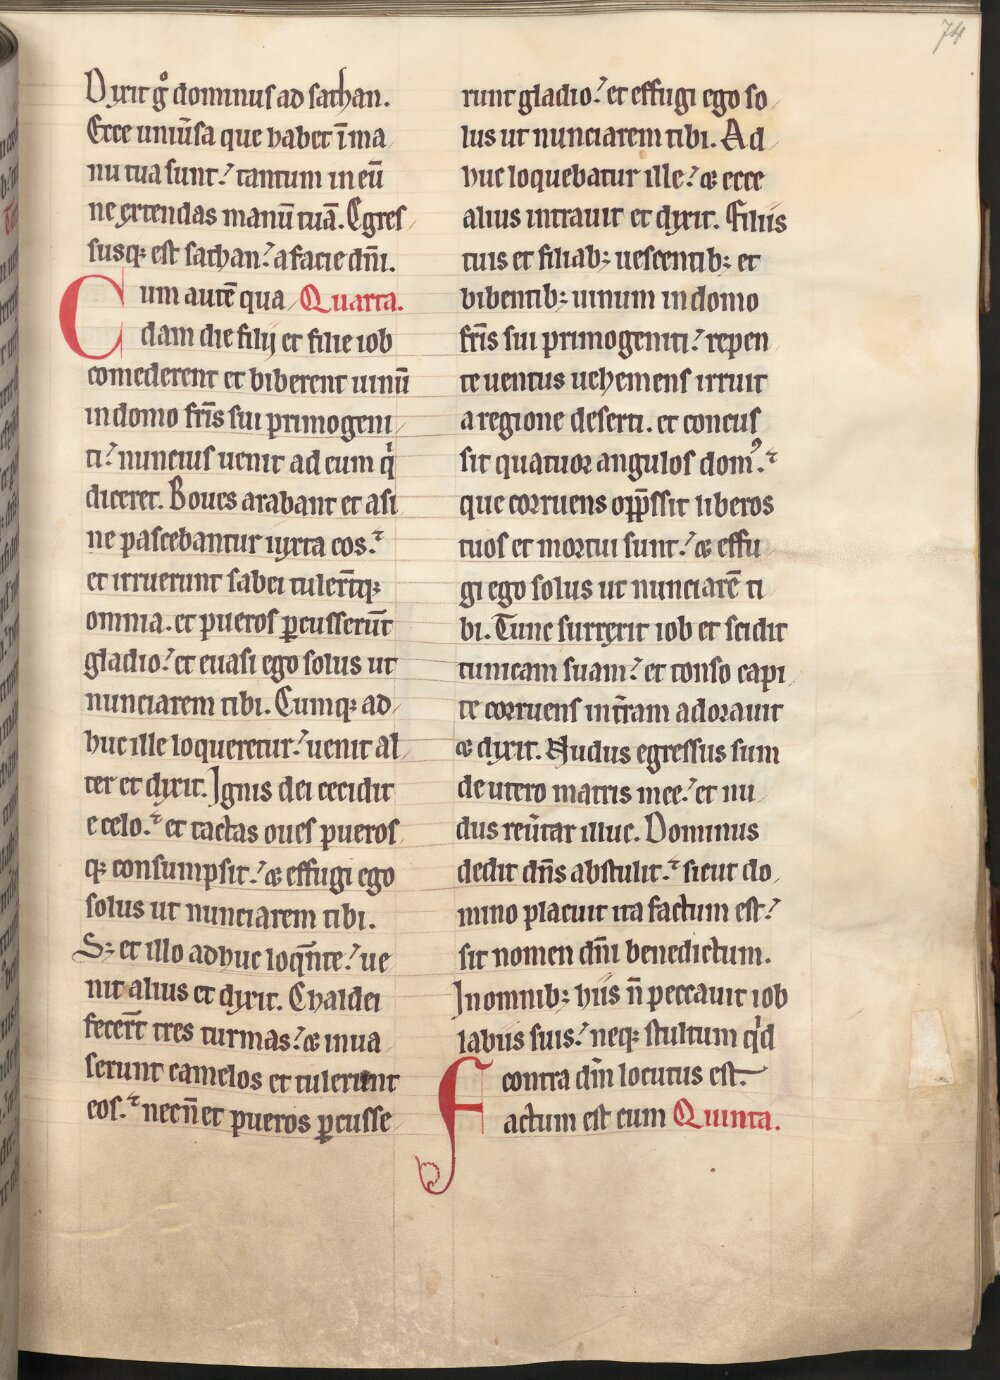 74
Dixit gͦ dominus ad sathan.
Ecce uniũsa que habet ĩ ma
nu tua sunt.' tantum in eũ
ne extendas manũ tuã. Egres
susq; est sathan.' a facie dñi.
Cum autẽ qua Quarta.
dam die filij et filie iob
comederent et biberent uinũ
in domo fr̃is sui primogeni
ti.' nuncius uenit ad eum qͥ
diceret. Boues arabant et asi
ne pascebantur iuxta eos.'
et irruerunt sabei tuler̃tq;
omnia. et pueros ꝑcusserũt
gladio.' et euasi ego solus ut
nunciarem tibi. Cumq; ad
huc ille loqueretur.' uenit al
ter et dixit. Ignis dei cecidit
e celo.' et tactas oues pueros
q; consumpsit.' & effugi ego
solus ut nunciarem tibi.
S; et illo adhuc loq̃nte.' ue
nit alius et dixit. Chaldei
fecer̃t tres turmas.' & inua
serunt camelos et tulerunt
eos.' necñ et pueros ꝑcusse
runt gladio.' et effugi ego so
lus ut nunciarem tibi. Ad
huc loquebatur ille.' & ecce
alius intrauit et dixit. Filiis
tuis et filiab; uescentib; et
bibentib; uinum in domo
fr̃is sui primogeniti.' repen
te uentus uehemens irruit
a regione deserti. et concus
sit quatuor angulos domꝰ.'
que corruens op̄p̄ssit liberos
tuos et mortui sunt.' & effu
gi ego solus ut nunciarẽ ti
bi. Tunc surrexit iob et scidit
tunicam suam.' et tonso capi
te corruens in t̃ram adorauit
& dixit. Nudus egressus sum
de utero matris mee.' et nu
dus reũtar illuc. Dominus
dedit dñs abstulit.' sicut do
mino placuit ita factum est.'
sit nomen dñi benedictum.
In omnib; hiis ñ peccauit iob
labiis suis.' neq; stultum qͥd
contra dm̃ locutus est.
Factum est cum Quinta.